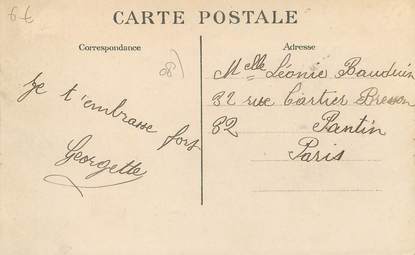 CARTE POSTALE
Correspondance
Je t'embrasse fort
Georgette
Adresse
Melle Léonie Bauduin
32 rue Cartier Bresson
32 Pantin
Paris